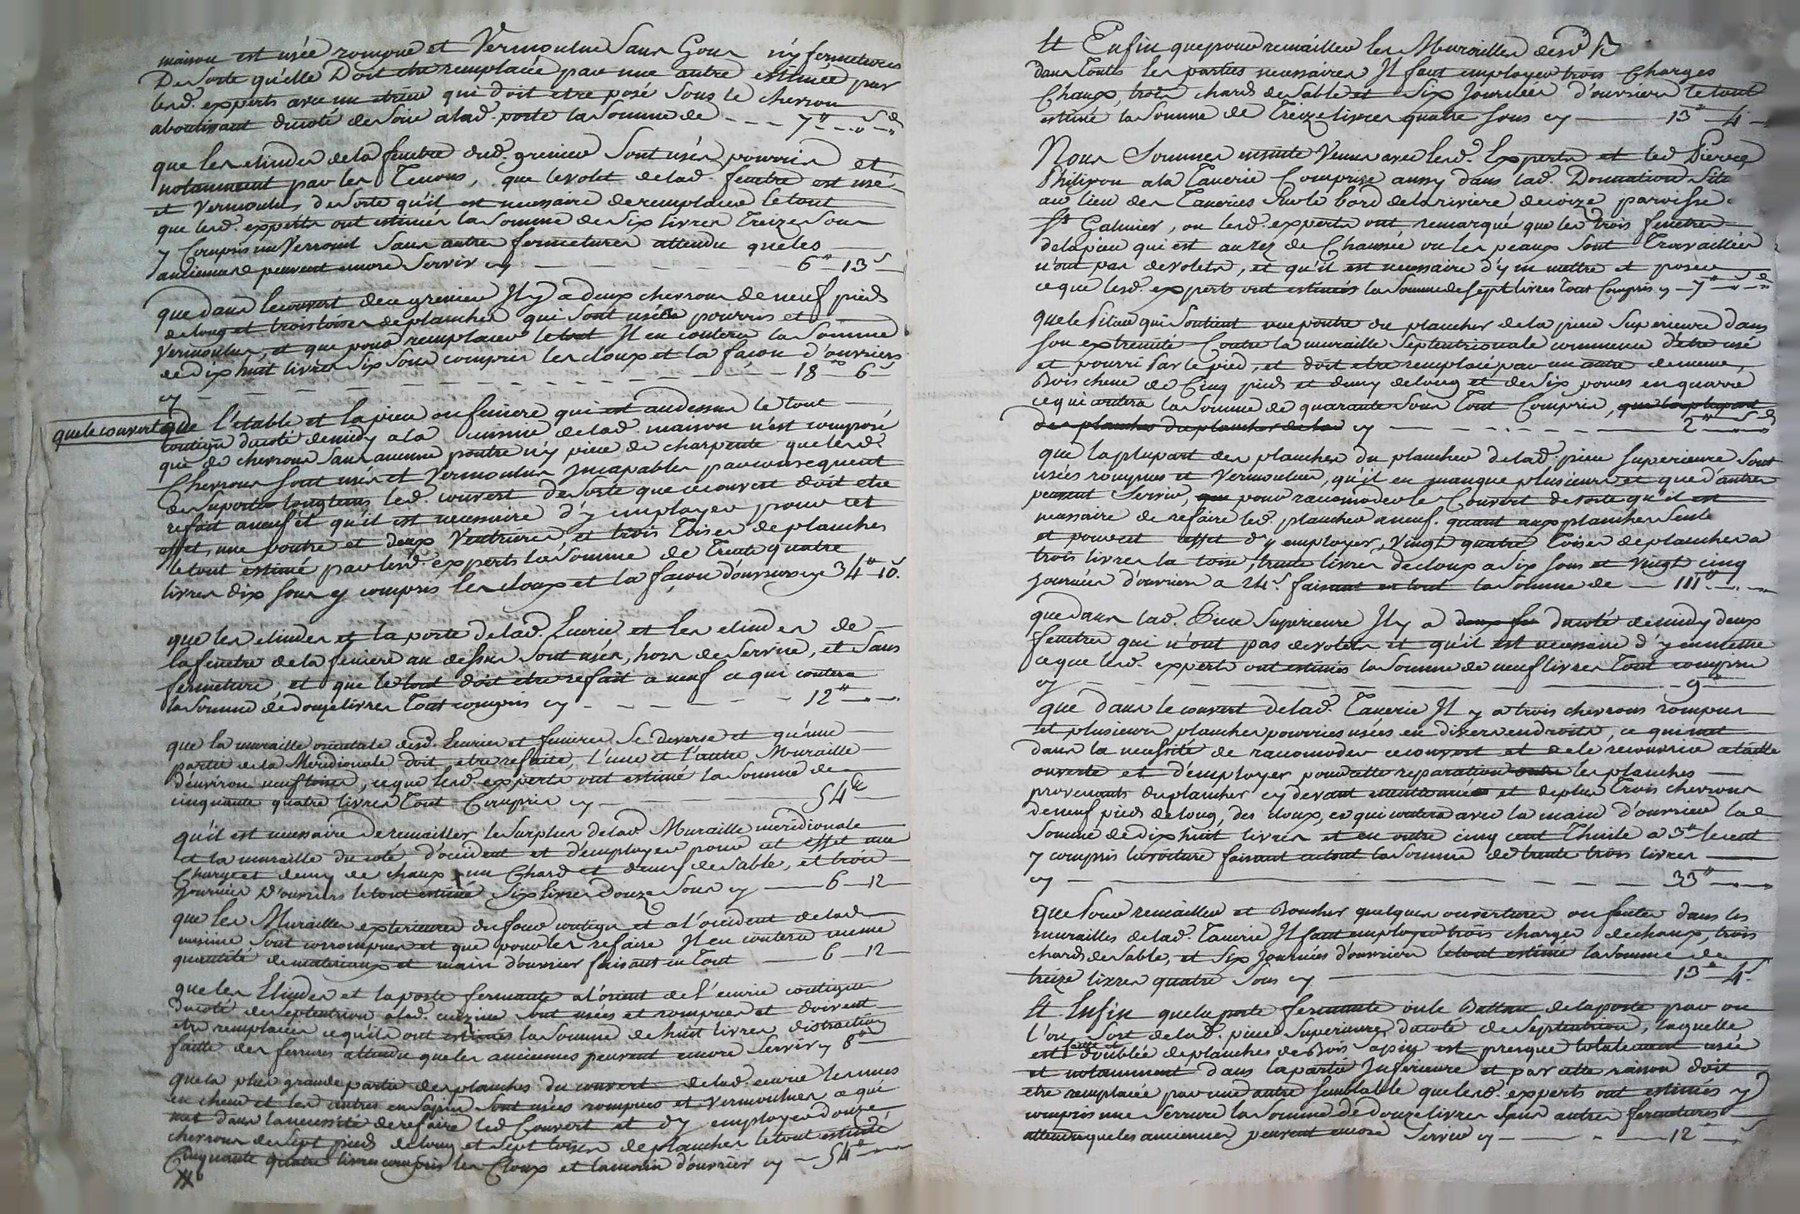 maison est usée rompue et Vermoulue Sans Gons n'y fermetures
De Sorte qu'elle Doit etre remplacée par une autre estimée par
lesd. experts avec un etrier qui doit etre posé Sous le chevron
aboutissant du coté de Soir a lad. porte la Somme de - - - 7 " - "
que les elindes de la fenêtre dud. grenier Sont usés pourris et
notamment par les Tenons, que le volet de lad. fenêtre est usé
et Vermoulus de Sorte qu'il est necessaire de remplacer le tout
que lesd. experts ont estimés la Somme de Six livres Treize Sous
y Compris un Verrouil Sans autre fermetures attendu que les
anciennes peuvent encore Servir cy - - - 6 " 13 s
que dans le couvert de ce grenier Il y a deux chevrons de neuf pieds
de long et trois toises de plancher qui Sont usées pourris et
Vermoulus, et que pour remplacer le tout Il en coutera la Somme
de dix huit livres Six Sous compris les cloux et la façon d'ouvriers
cy - - - 18 " 6 s
que le couvert de l'etable et la piece ou feniere qui est au dessus le tout
contigu du coté de midy a la cuisine de lad. maison n'est composé
que de chevrons Sans aucune poutre n'y piece de charpente que lesd.
Chevrons Sont usés et Vermoulus Incapables par consequent
de Suporter longtems led. couvert de Sorte que ce couvert doit etre
refait a neuf et qu'il est necessaire d'y employer pour cet
effet, une poutre et deux Ventrieres, et trois Toises de planches
le tout estimé par lesd. experts la Somme de Trente quatre
livres dix Sous y compris les cloux et la façon d'ouvriers cy 34 " 10 s.
que les elindes et la porte de lad. Ecurie et les elindes de
la fenêtre de la feniere au dessus Sont uses, hors de Service, et Sans
fermeture, et que le tout doit etre refait a neuf ce qui coutera
la Somme de douze livres Tout compris cy - - - 12 "
que la muraille orientale desd. Ecurie et feniere Se deverse et qu'une
partie de la Meridionale doit etre refaite, l'une et l'autre Muraille
d'environ neuf toises, ce que lesd. experts ont estimé la Somme de
cinquante quatre livres Tout Compris cy - - - 54 "
qu'il est necessaire de remailler le Surplus de lad. Muraille meridionale
et la muraille du coté d'occident et d'employer pour cet effet une
Charge et demy de chaux, un Chard et demy de Sable, et trois
Journées D'ouvriers le tout estimé Six livres Douze Sous cy - 6 - 12
que les Murailles exterieures du four contigu et a l'occident de lad.
cuisine Sont corrompues et que pour les refaire Il en coutera meme
quantité de materiaux et main d'ouvrier faisant en Tout - 6 - 12
que les Elindes et la porte fermante a l'orient de l'ecurie contigue
du coté de Septentrion a lad. cuisine Sont usées et rompues et doivent
etre remplacées ce qu'ils ont estimés la Somme de huit livres distraction
faitte des ferrures attendu que les anciennes peuvent encore Servir cy 8 "
que la plus grande partie des planches du couvert de lad. ecurie les unes
en chene et les autres en Sapin Sont usées rompues et Vermoulues ce qui
met dans la necessité de refaire led. Couvert et d'y employer douze
chevrons de Sept pieds de long et Sept toises de plancher le tout estimé
Cinquante quatre livres compris les Cloux et la main d'ouvrier cy - 54 "
Et Enfin que pour remailler les Murailles desd.
dans Toutes les parties necessaires Il faut employer trois Charges
Chaux, trois chards de Sable et Six Journées d'ouvriers le tout
estimé la Somme de Treize livres quatre Sous cy - 13 " 4
Nous Sommes ensuite Venus avec lesd. Experts et led. Pierre
Philipon a la Tanerie Comprise aussy dans lad. Donnation Size
au lieu des Taneries Sur le bord de la riviere de coize paroisse
St Galmier, ou lesd. experts ont remarqué que les trois fenêtres
de la piece qui est au rez de Chaussée ou les peaux Sont Travaillées
n'ont pas de volets, et qu'il est necessaire d'y en mettre et poser
ce que lesd. experts ont estimés la Somme de Sept livres Tout Compris cy - 7 "
que le Pilier qui Soutient une poutre du plancher de la piece Superieure dans
Son extremité Contre la muraille Septentrionale commence d'etre usé
et pourri Par le pied, et doit etre remplacé par un autre de meme
Bois chene de Cinq pieds et demy de long et de Six pouces en quarré
ce qui coutera la Somme de quarante Sous Tout Compris, que la plupart
des planches du plancher de lad cy - - - 2 "
que la plupart des planches du plancher de lad. piece Superieure Sont
usées rompues et Vermoulues, qu'il en manque plusieurs et que d'autres
peuvent Servir, que pour racomoder le Couvert de Sorte qu'il est
necessaire de refaire led. plancher a neuf. quant aux planches Seule
et pour cet effet d'y employer, Vingt quatre Toises de plancher a
trois livres la toise, trente livres de cloux a Six Sous et Vingt cinq
Journées d'ouvrier a 24 s. faisant en tout la Somme de - 111 "
que dans lad. Piece Superieure Il y a deux fen du coté de midy deux
fenêtres qui n'ont pas de volets et qu'il est necessaire d'y en mettre
ce que lesd. experts ont estimés la Somme de neuf livres Tout compris
cy - - - 9 "
que dans le couvert de lad. Tanerie Il y a trois chevrons rompus
et plusieurs planches pourries usées en divers endroits, ce qui met
dans la necessité de racomoder ce couvert et de le recouvrir a taille
ouverte et d'employer pour cette reparation outre les planches
provenants du plancher cy devant mentionné et de plus Trois chevrons
de neuf pieds de long, des cloux, ce qui coutera avec la main d'ouvrier la
Somme de dix huit livres et en outre cinq cent Thuile a 3 " le cent
y compris la voiture faisant en tout la Somme de trente trois livres
cy - - - 33 "
que Pour remailler et Boucher quelques ouvertures ou fentes dans les
murailles de lad. Tanerie Il faut employer trois charges de chaux, trois
chards de Sable, et Six Journées d'ouvriers le tout estimé la Somme de
treize livres quatre Sous cy - 13 " 4 s
Et Enfin que la porte fermante ou le Battan de la porte par ou
l'on Sort de lad. piece Superieure du coté de Septentrion, laquelle
est doublée de planches de Bois Sapin est presque totalement usée
et notamment dans la partie Inferieure et par cette raison doit
etre remplacée par une autre Semblable que lesd. experts ont estimés y
compris une Serrure la Somme de douze livres Sans autre fermetures
attendu que les anciennes peuvent encore Servir cy - - - 12 "